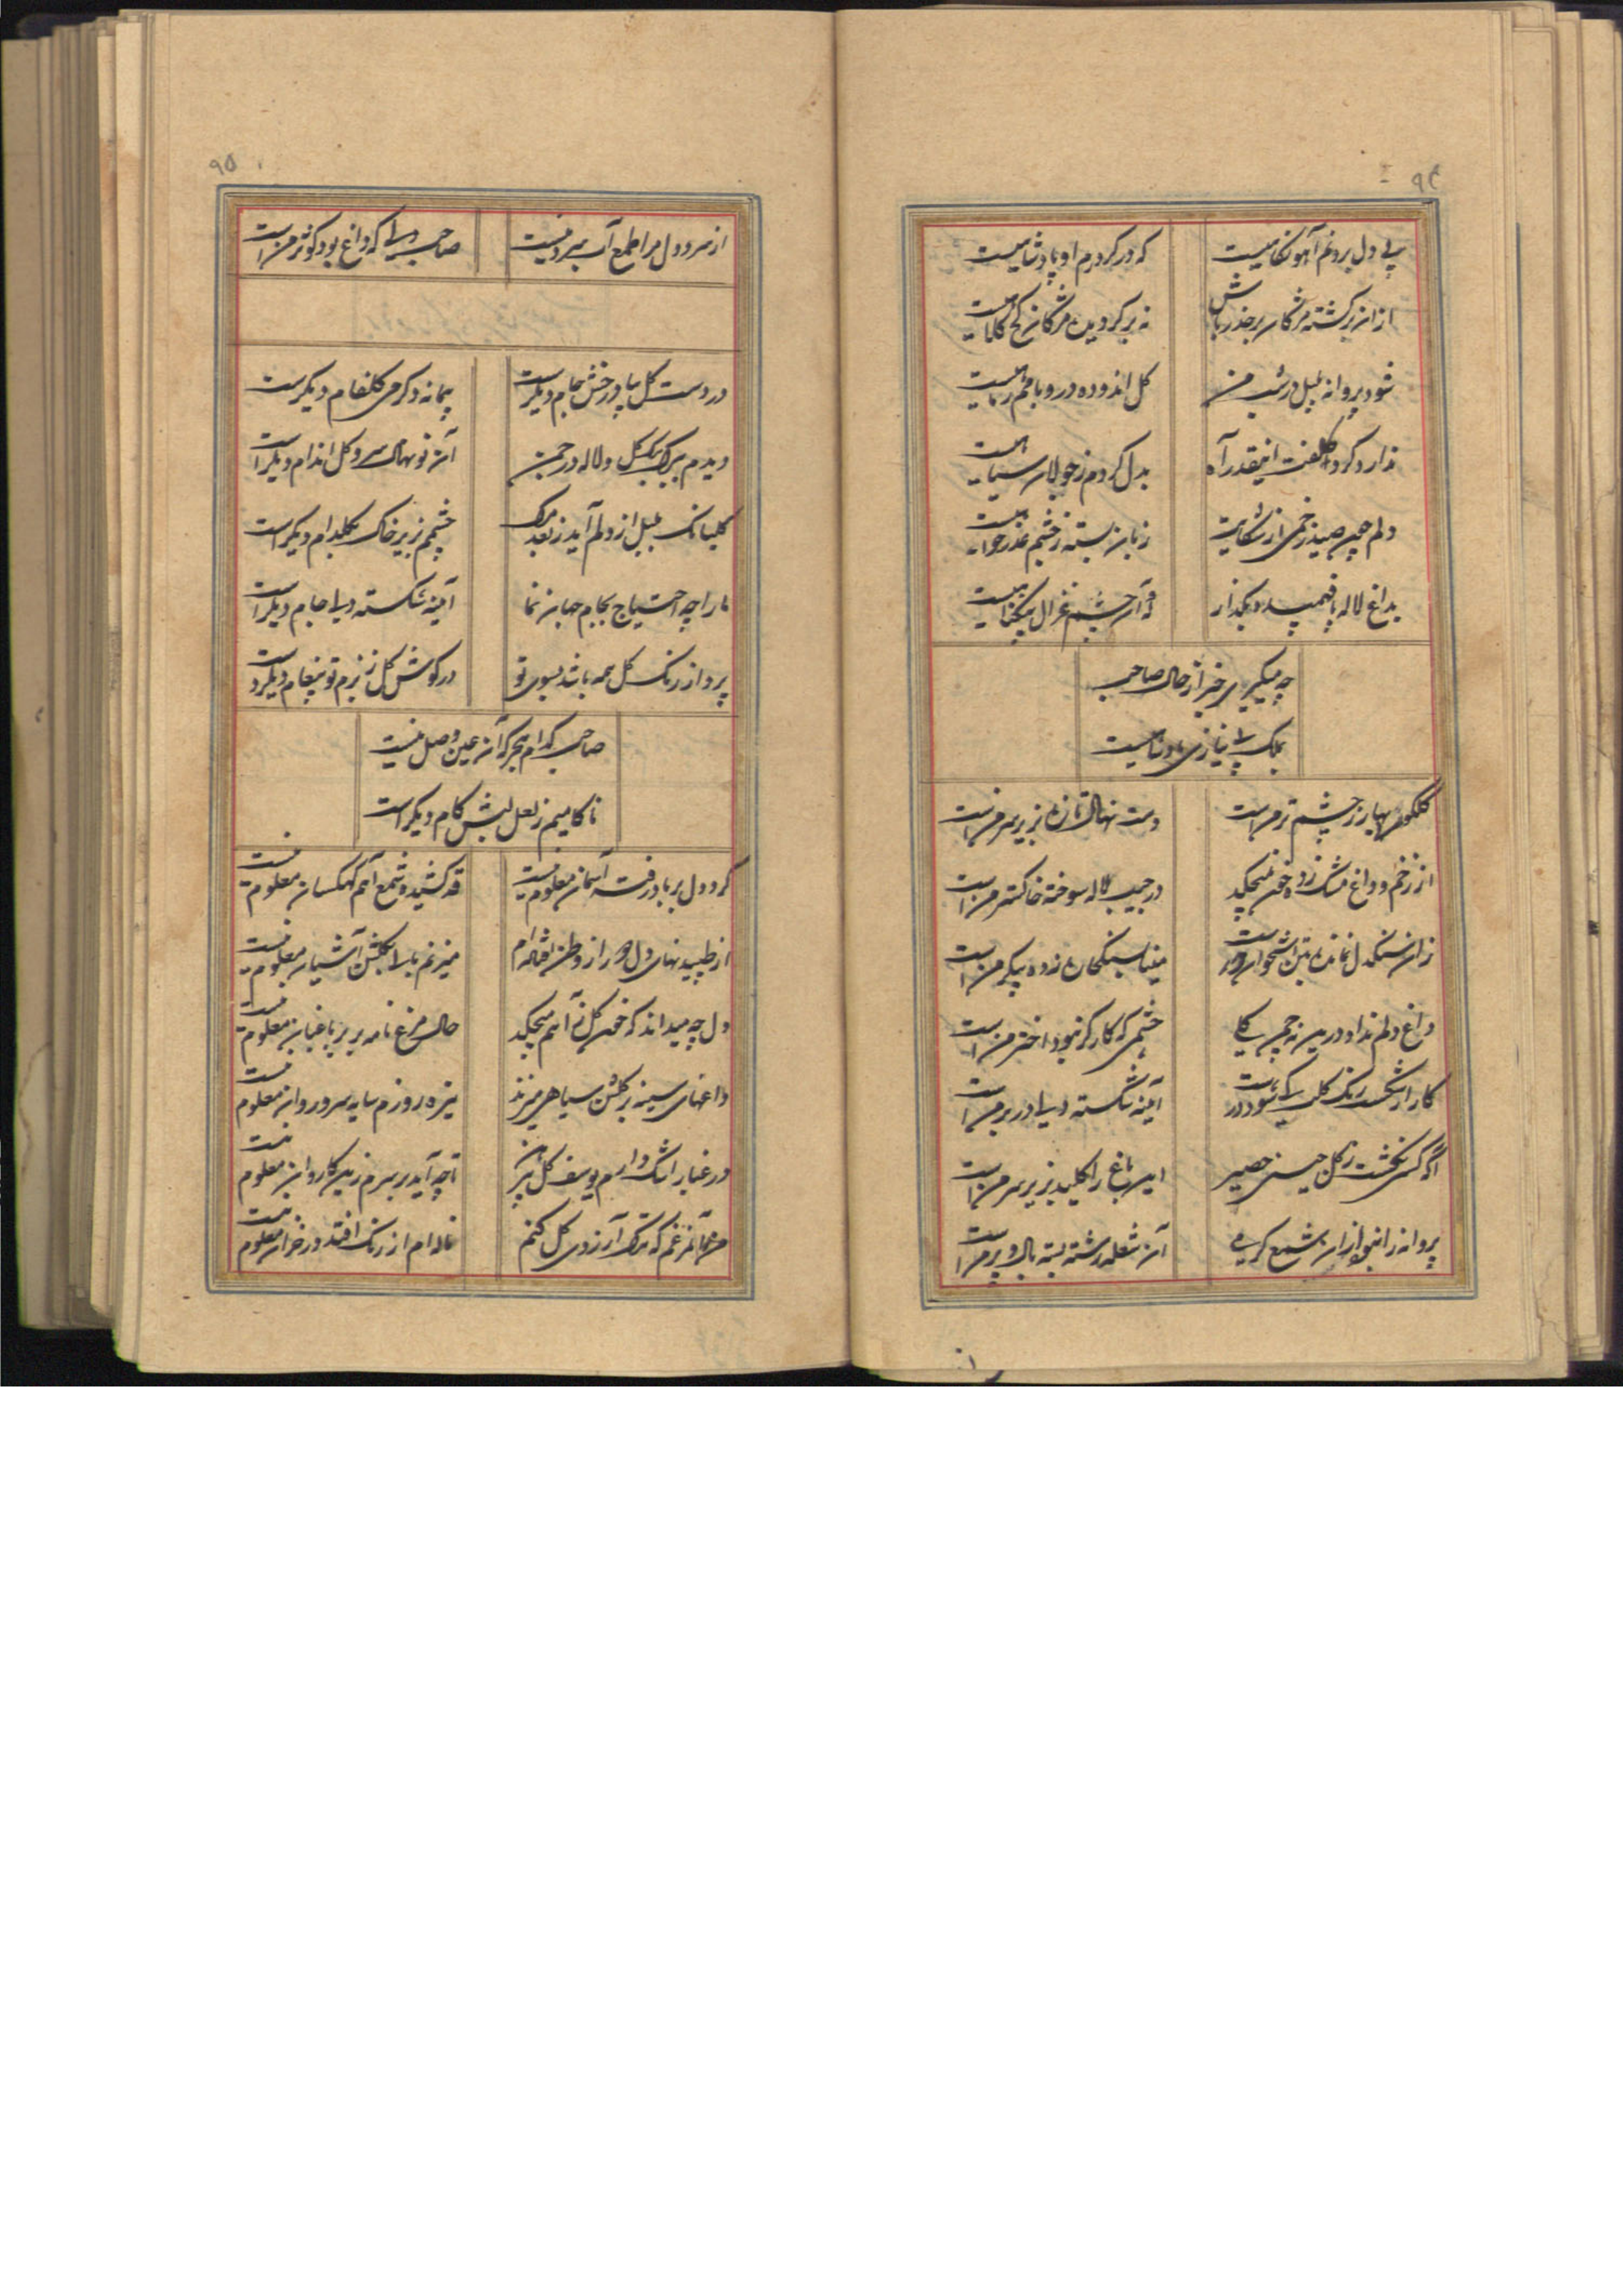 ۹۴
پی دل بردنم آهو نگاهیست
که در کردم او پادشاهیست
از آن برگشته مژگان بر حذر باش
نه برگردیده مژگان کج کلاهیست
شود پروانه بلبل در شب من
گل اندوده در و بامم
ندارد گرد کلفت اینقدر آه
بدل کردم ز جولان سیاهیست
دلم چون صید زخمی از شکایت
زبان بسته ز خشم عذرخواهیست
بداغ لاله پا فهمیده بگذار
که آن چشم غزال بیگناهیست
چه میگیری خبر از حال صاحب
بملک بی نیازی پادشاهیست
گلگون بهار ز چشم تر من است
دست نهال تازه بزیر سر من است
از زخم و داغ مشک زده خون نمیچکید
در جیب لاله سوخته خاکستر من است
زان سنگدل نمانده بتن استخوان درست
مینای سنگ جان زده پیکر من است
داغ دلم نداد درین نه چمن گلی
خشمی که کارگر نبود اختر من است
کار از شکست رنگ کسی کی شود درست
آیینه شکسته دلی در بر من است
آگه کسی نگشت ز گل چینی حصیر
این باغ را کلید بزیر سر من است
پروانه را نبود از آن شمع گرمیی
آن شعله رشته بسته بال و پر من است
۹۵
از سرو دل مرا طمع آب سرد نیست
صاحب دلی که داغ بود کوثر من است
در دست گل پیاله درخش جام دیگر است
پیمانه دگر می گلفام دیگر است
دیدم ببرگ برگ گل و لاله در چمن
آن نونهال سرو گل اندام دیگر است
گلبانگ بلبل از دلم آید ز بعد مرگ
چشمم بزیر خاک بگلدام دیگر است
ما را چه احتیاج بجام جهان نما
آیینه شکسته دلی جام دیگر است
پرواز رنگ گل همه باشد بسوی تو
در گوش گل ز بزم تو پیغام دیگر است
صاحب کدام هجر که آن عین وصل نیست
ناکامیم ز لعل لبش کام دیگر است
گرد دل بر باد رفت آسمان معلوم نیست
قد کشیده شمع آهم کهکشان معلوم نیست
از طپیدنهای دل دور از وطن افتاده ام
میزنم بالا بگلشن آشیان معلوم نیست
دل چه میداند که خون گل ز آهم میچکد
حال مرغ نامه بر بر باغبان معلوم نیست
داغهای سینه بر گلشن سیاهی میزند
تیره روزم سایه سرو روان معلوم نیست
در غبار اشک دارم یوسف گل پیرهن
تا چه آید بر سرم زین کاروان معلوم نیست
من کجا آن غم که ترک آرزوی گل کنم
ناله ام از رنگ افتد در خزان معلوم نیست